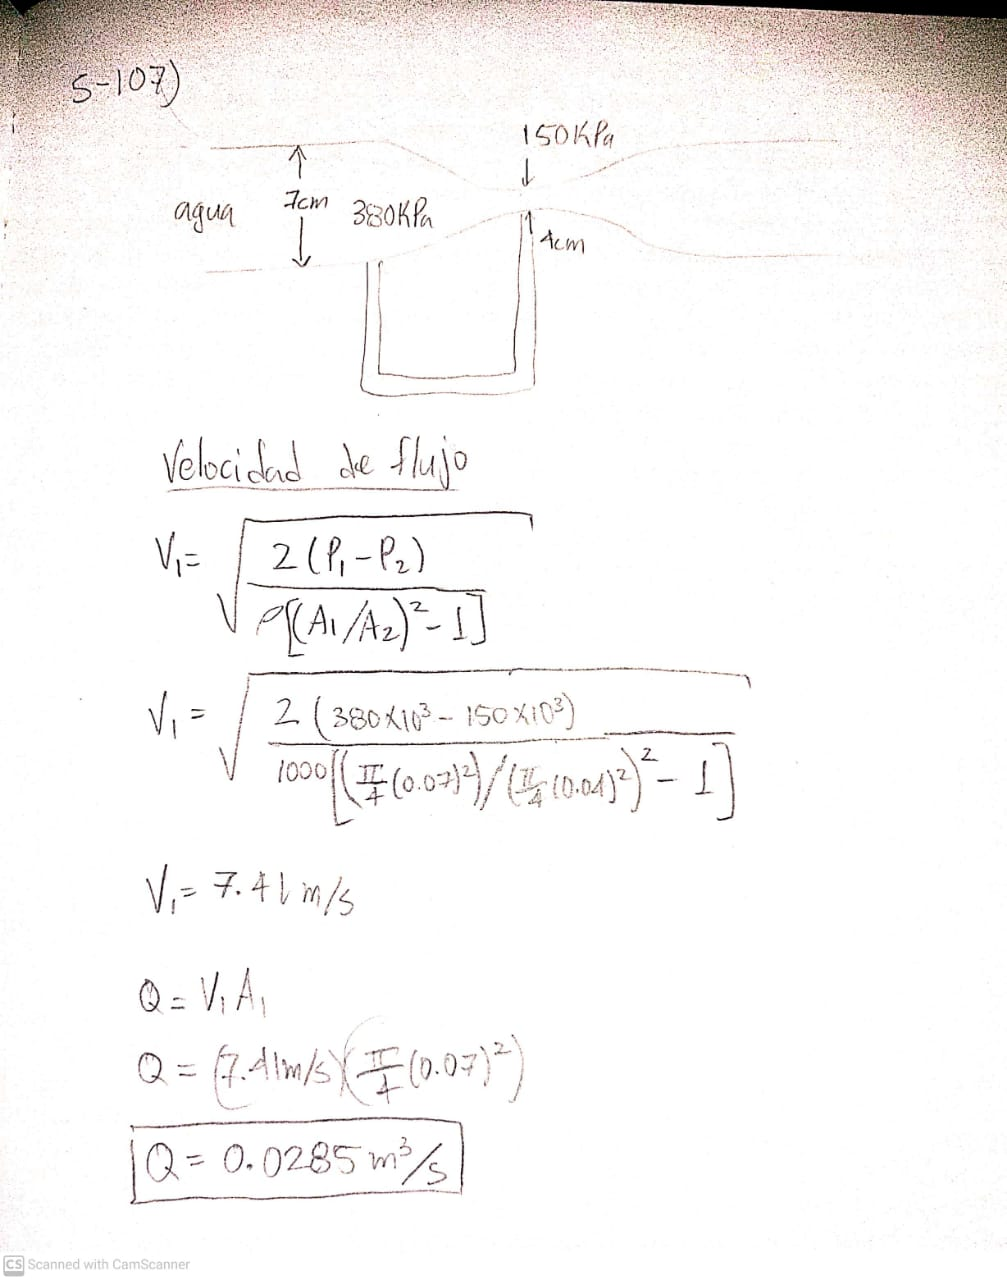 5-107)
150KPa
agua 7cm 380KPa
4cm
Velocidad de flujo
V₁= √ 2(P₁-P₂)
ρ[(A₁/A₂)²-1]
V₁= √ 2(380x10³-150x10³)
1000[((π/4(0.07)²)/(π/4(0.04)²))²-1]
V₁= 7.41 m/s
Q = V₁A₁
Q = (7.41m/s)(π/4(0.07)²)
Q = 0.0285 m³/s
CS Scanned with CamScanner